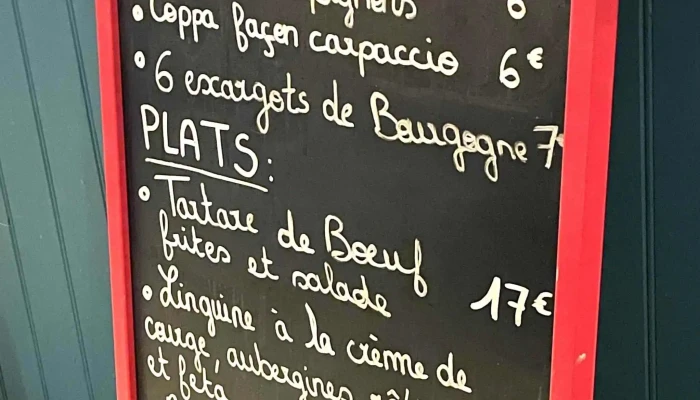 Coppa façon carpaccio 6€
6 escargots de Bourgogne 7€
PLATS:
Tartare de Bœuf
frites et salade 17€
Linguine à la crème de
courge, aubergines
et feta